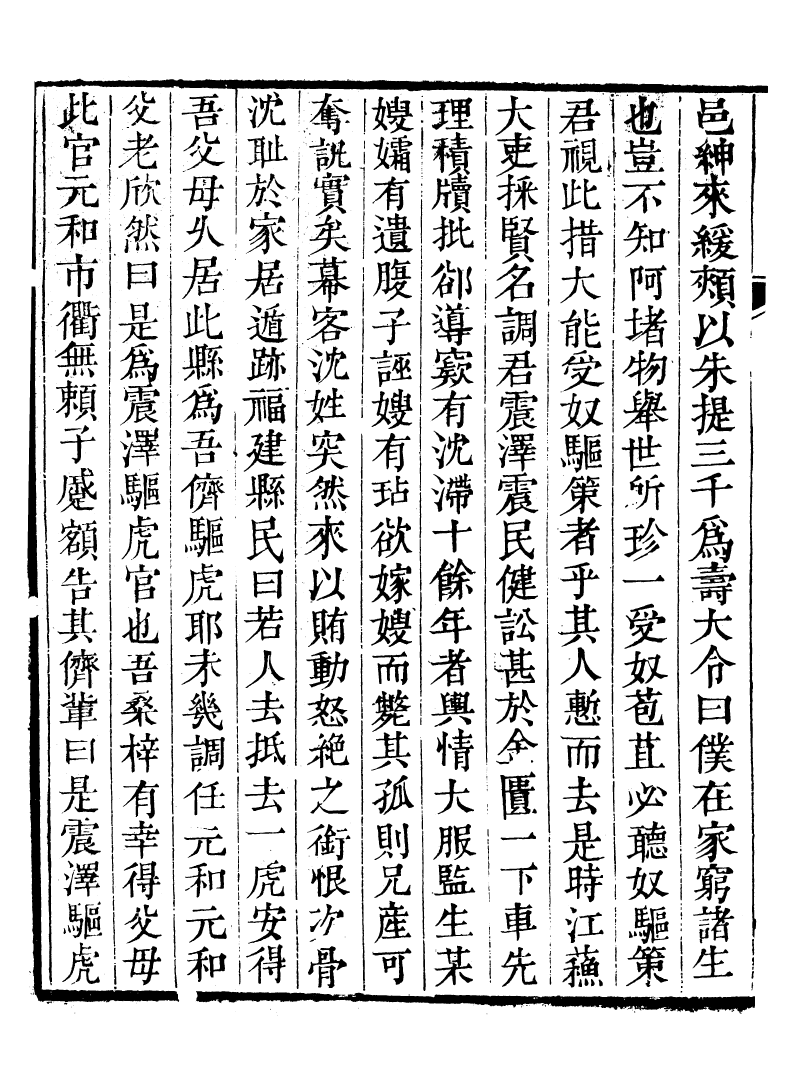 邑紳來緩頰以朱提三千爲壽大令曰僕在家窮諸生
也豈不知阿堵物舉世所珍一受奴苞苴必聽奴驅策
君視此措大能受奴驅策者乎其人慙而去是時江蘓
大吏採賢名調君震澤震民健訟甚於金匱一下車先
理積牘批郤導窾有沈滯十餘年者輿情大服監生某
嫂孀有遺腹子誣嫂有玷欲嫁嫂而斃其孤則兄産可
奪訊實矣幕客沈姓突然來以賄動怒絶之銜恨次骨
沈耻於家居遁跡福建縣民曰若人去抵去一虎安得
吾父母久居此縣爲吾儕驅虎耶未幾調任元和元和
父老欣然曰是爲震澤驅虎官也吾桑梓有幸得父母
此官元和市衢無頼子蹙額告其儕輩曰是震澤驅虎